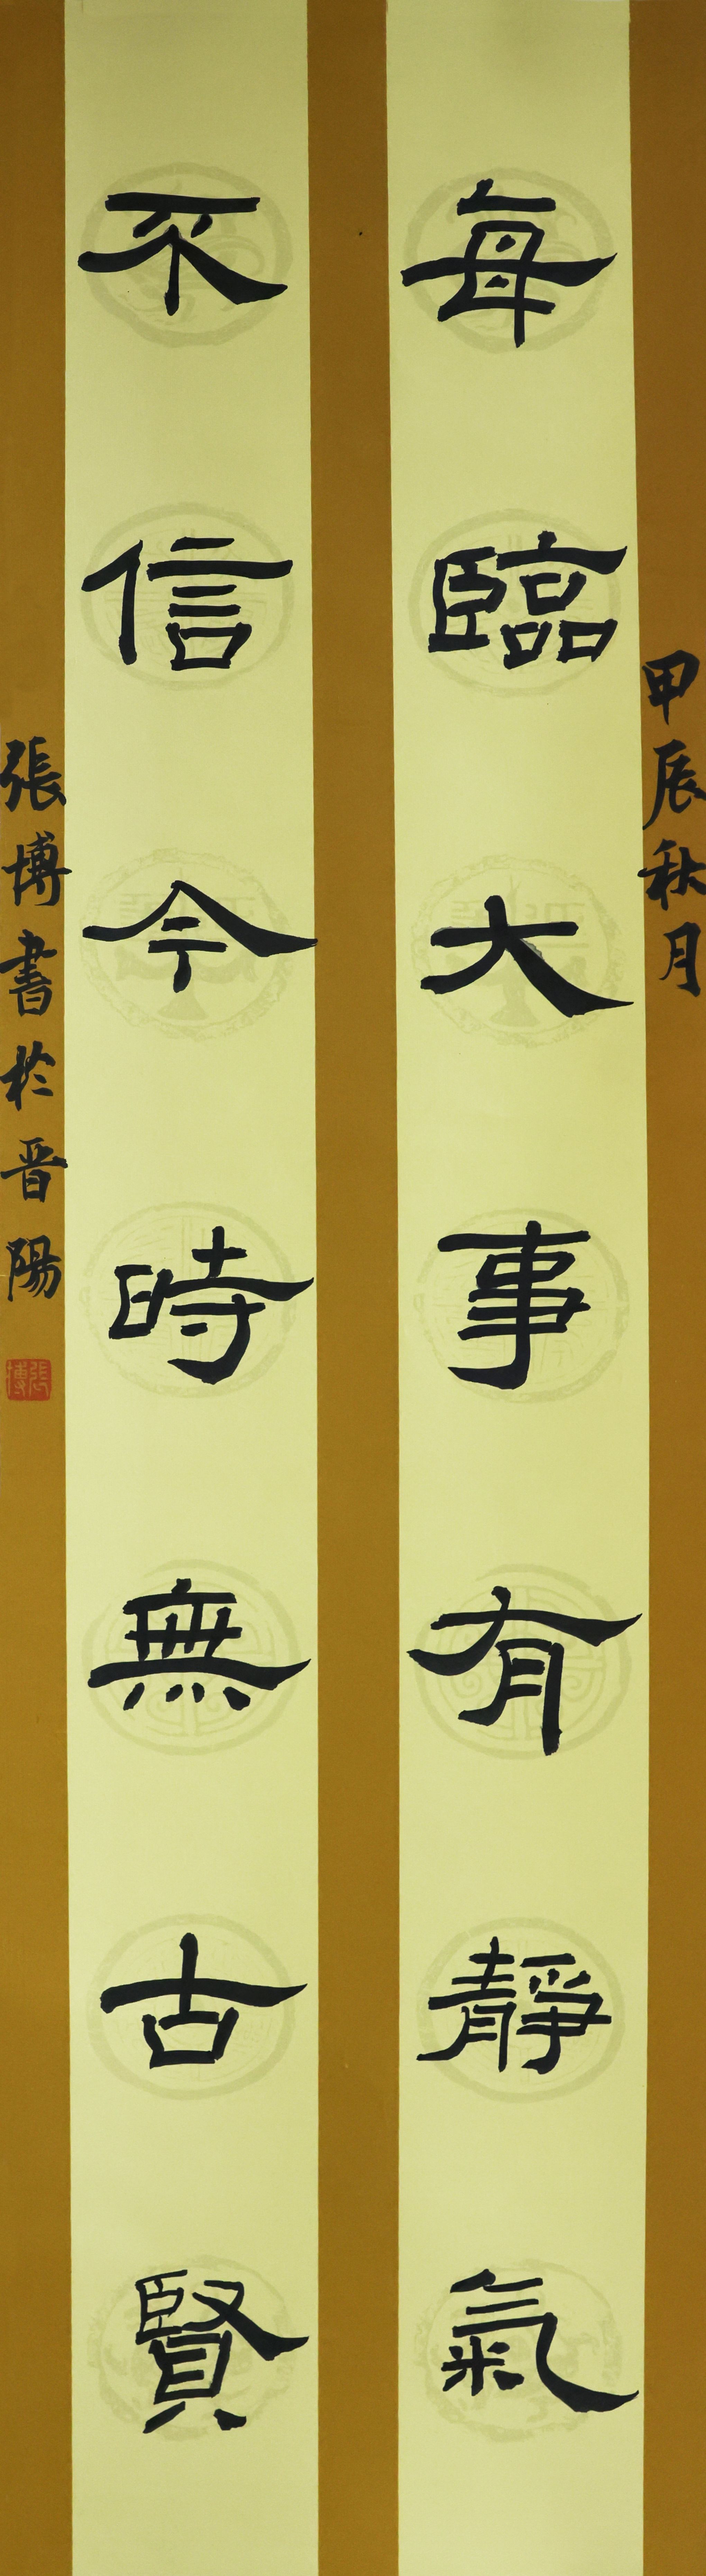 甲辰秋月
每臨大事有靜氣
不信今時無古賢
張博書於晉陽
張博